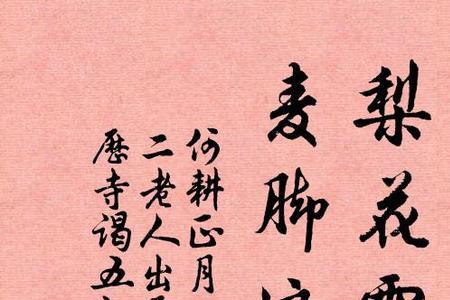 梨花
麦脚
何耕正月
二老人出
歷寺谒五